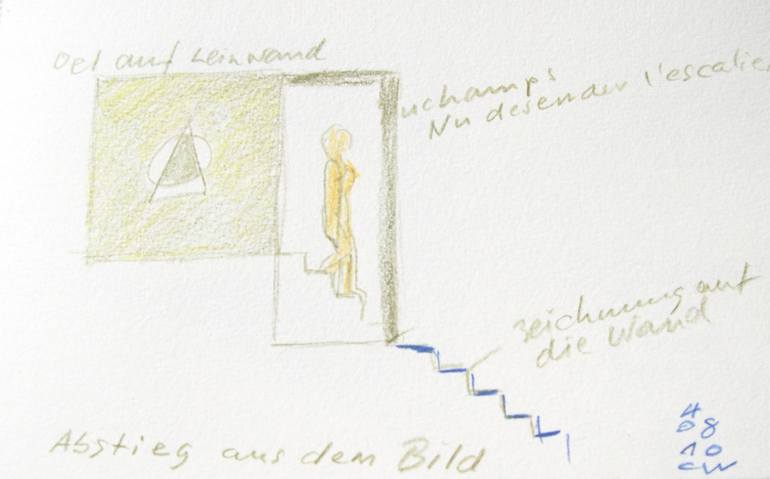 Oel auf Leinwand
uchamp's
Nu desender l'escalier
zeichnung auf
die Wand
Abstieg aus dem Bild
4
08
10
CW